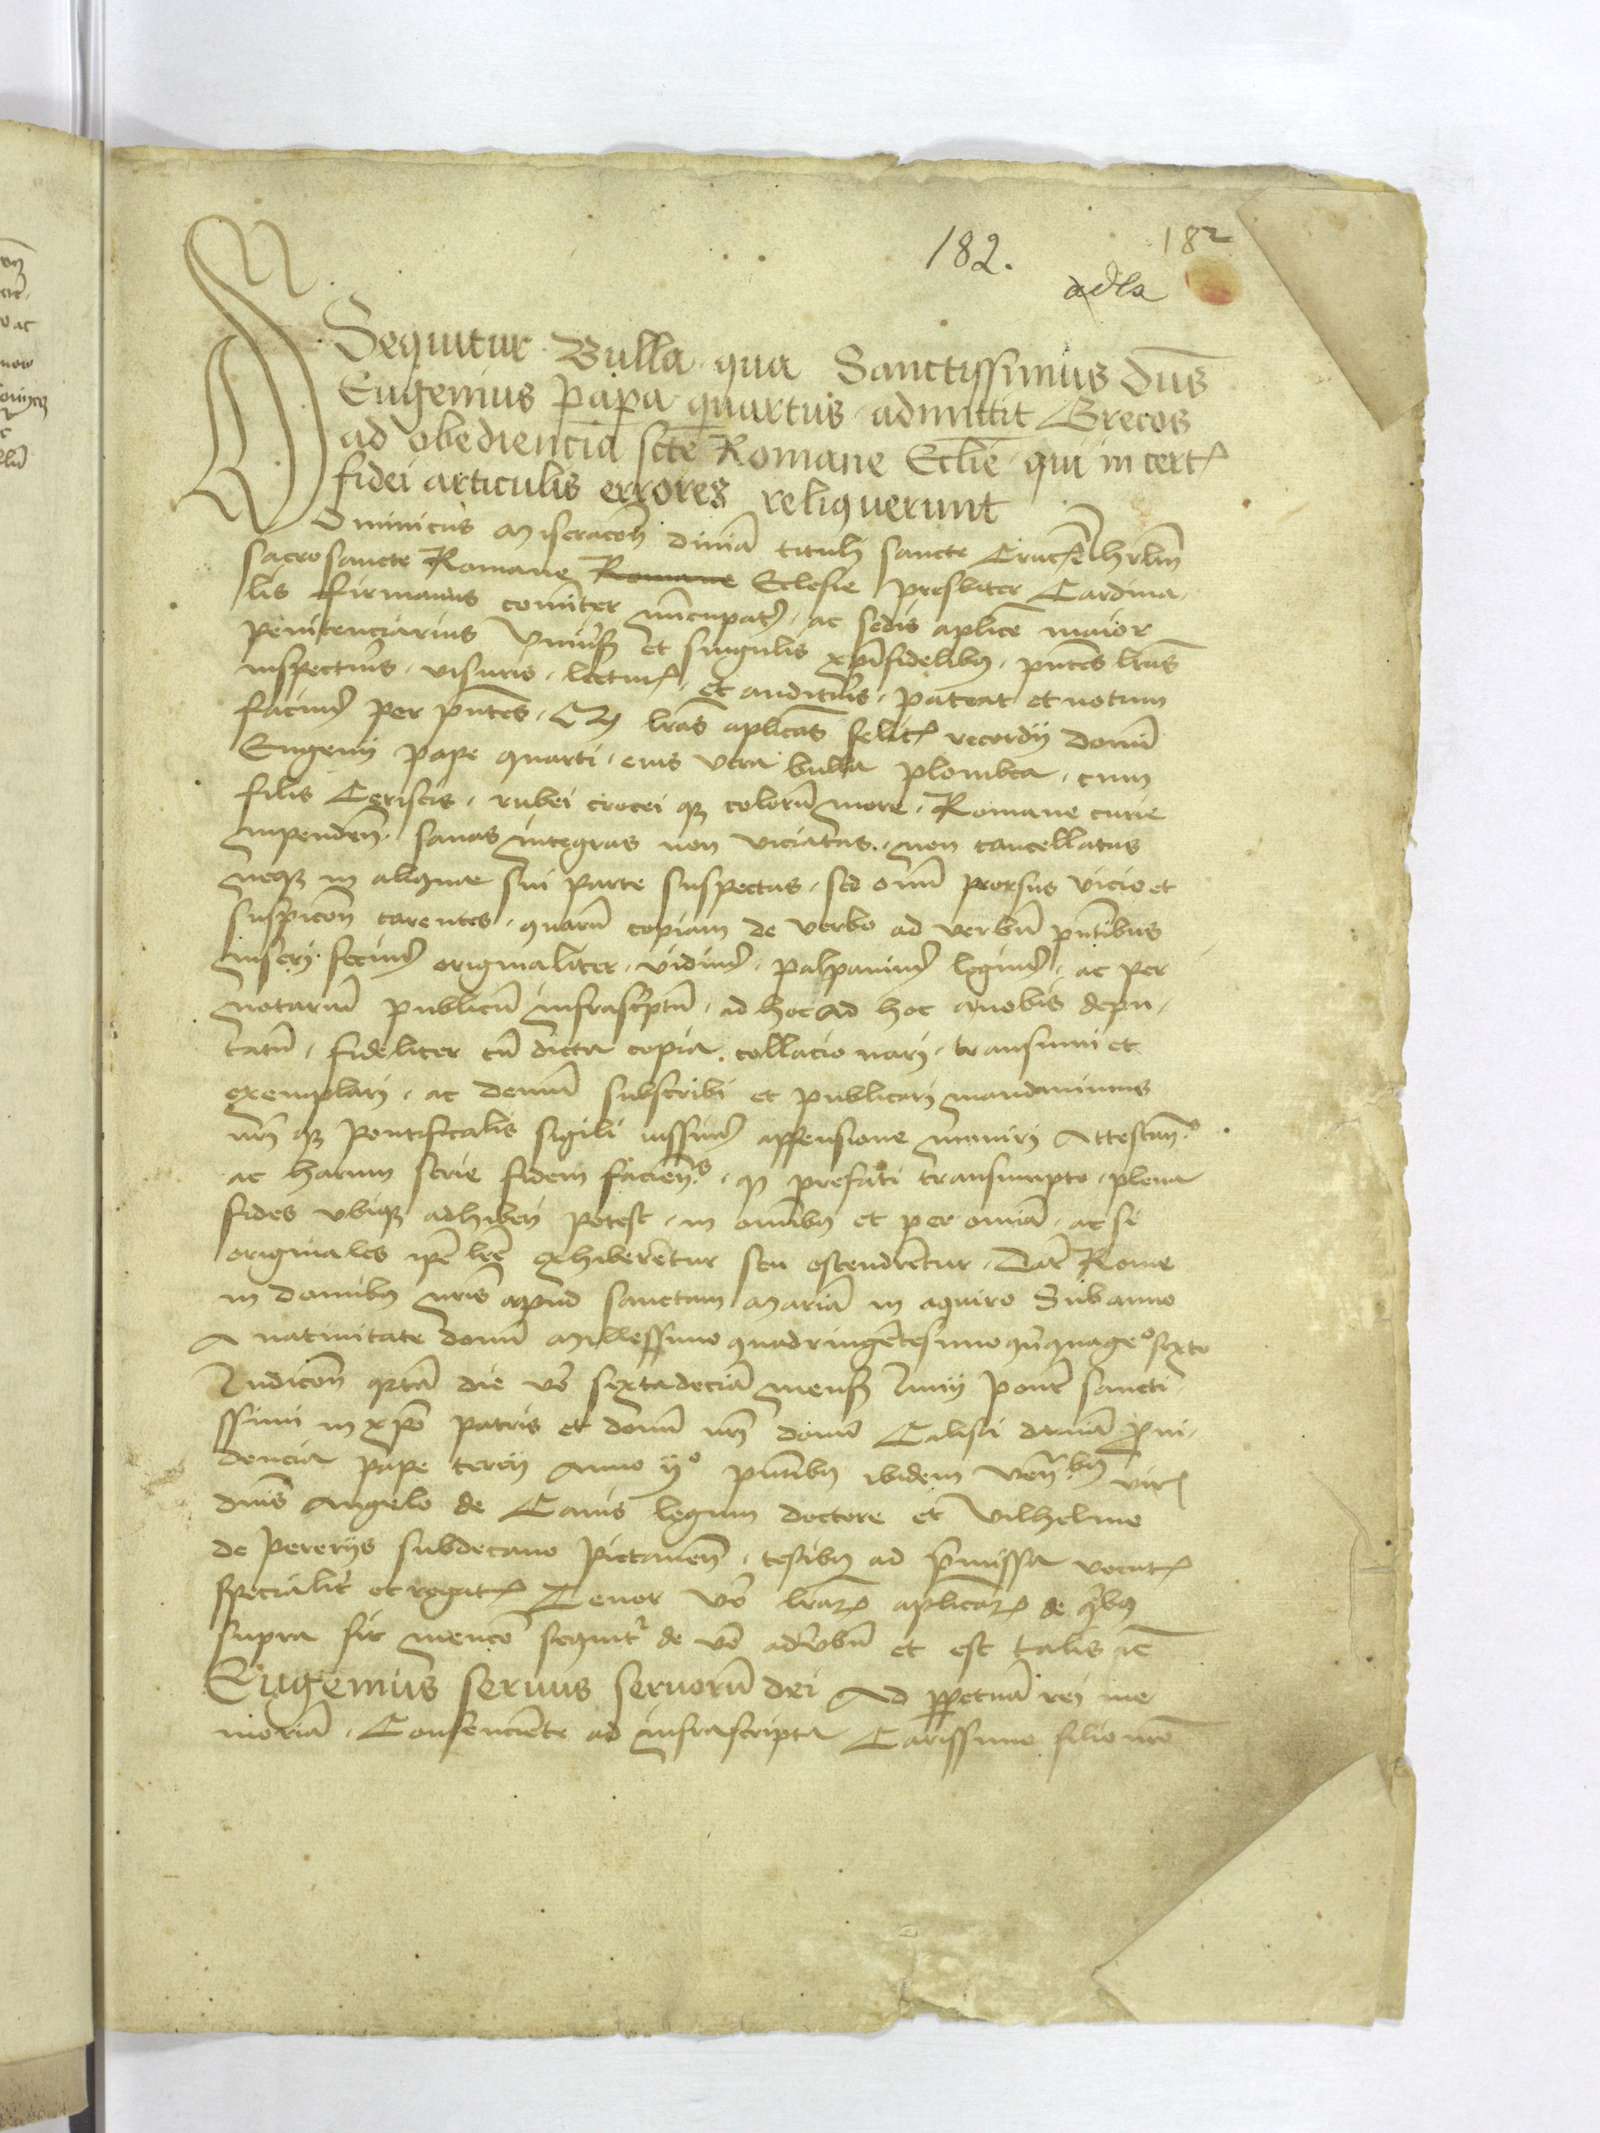 182. 182
adla
Sequitur Bulla qua Sanctissimus dns̄
Eugenius papa quartus admittit Grecos
ad obediencia scte Romane Ecclie qui in cert
fidei articulis errores reliquerunt
Dominicus Miseracōn divīa tituli sancte Crucē ihrlm̄
sacrosancte Romane Romane Eclesie presbiter Cardina
lis firmanus com̄iter nūcupatꝰ ac sedis aplice maior
penitenciarius Univ̄sꝭ et singulis xp̄ifidelibꝰ pn̄tes lras
inspecturis visuris lecturꝭ et audituris pateat et notum
facimꝰ per pn̄tes lras aplicas felicꝭ recordij domī
Eugenij pape quarti eius vera bulla plombea cum
filis Cericis rubei crocei qꝫ colorū more Romane curie
inpendēn sanas integras non viciatas non cancellatas
neqꝫ in aliqua sui parte suspectas sed omī prorsus vicio et
suspicōn carentes quarū copiam de verbo ad verbū pn̄tibus
inseri fecimꝰ originaliter vidimꝰ palpavimꝰ legimꝰ ac per
notariū publicū infrascriptū ad hoc ad hoc a nobis depu
tatū fideliter cū dicta copia collacionari transumi et
exemplari ac demū subscribi et publicari mandavimus
nr̄i qꝫ pontificalis sigili iussimꝰ appensione muniri Attestan
ac harum serie fidem facien ꝙ prefati transumpto plena
fides ubiqꝫ adhiberi potest in omībꝰ et per omīa ac si
originales ip̄e lr̄e exhiberentur seu ostendrētur Dat̄ Rome
in domibꝰ nr̄is apud sanctam Mariā in aquiro Sub anno
A nativitate domī Millessimo quadringētesimo quīquageᵒ sexto
Indicōn qrtā die vō sextadecīa mensꝭ Junij pont̄ sancti
ssimi in xp̄o patris et domī nr̄i domī Calisti divina pvi
dencia pape tercij Anno ijᵒ pn̄tibꝰ ibidem veñbꝰ virꝭ
dn̄is Angelo de Cavis legum doctore et Vilhelmo
de pererijs subdecano pictaveñ testibꝰ ad p̄missa vocatꝭ
specialit̄ et rogatꝭ Tenor vō lrarꝝ aplicarꝝ de qⁱbꝰ
supra fit mencō sequitᷣ de vō ad vbū et est talis
Eugenius servus servorū dei Ad ppetuā rei me
moriā Consencientē ad infrascripta Carissimo filio nr̄o